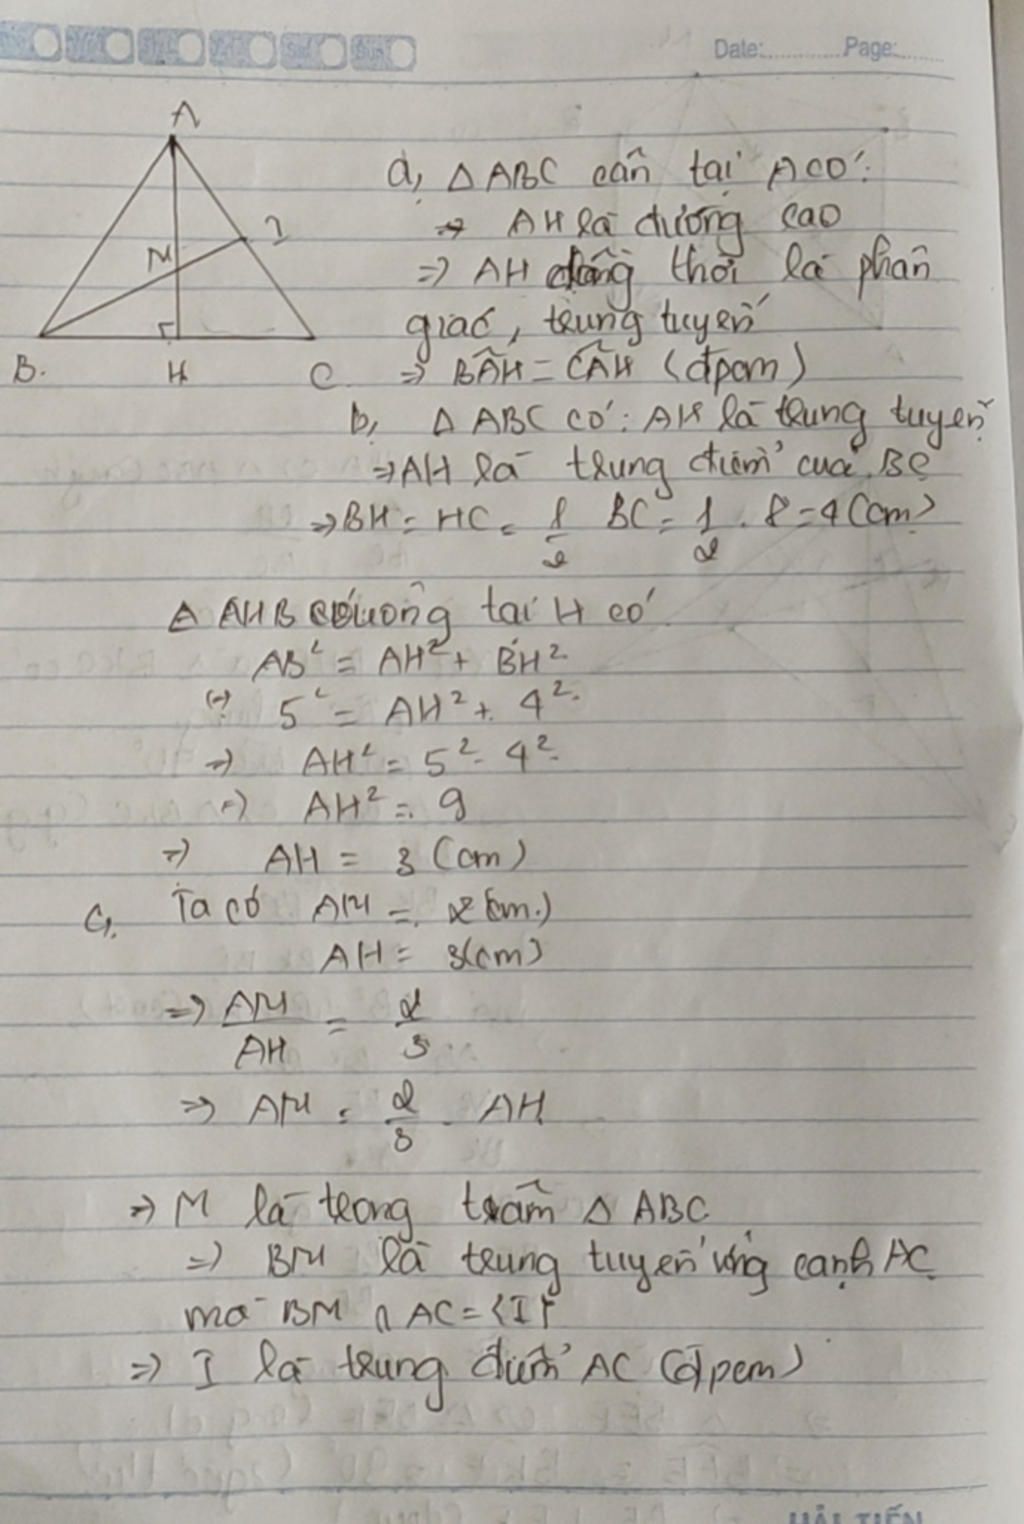 Date: Page:
A
a, Δ ABC cân tại A có:
I
⇒ AH là đường cao
M
⇒ AH đồng thời là phân
giác, trung tuyến
B. H C
⇒ BÂH = CÂH (đpcm)
b, Δ ABC có: AH là trung tuyến
⇒ AH là trung điểm của BC
⇒ BH = HC = 1/2 BC = 1/2 . 8 = 4 (cm)
Δ AHB vuông tại H có
AB² = AH² + BH²
(=) 5² = AH² + 4²
=) AH² = 5² - 4²
=) AH² = 9
=) AH = 3 (cm)
c, Ta có AM = 2 (cm)
AH = 3 (cm)
=) AM/AH = 2/3
=) AM = 2/3 . AH
=) M là trong tâm Δ ABC
=) BM là trung tuyến ứng cạnh AC
mà BM ∩ AC = {I}
=) I là trung điểm AC (đpcm)
HẢI TIẾN